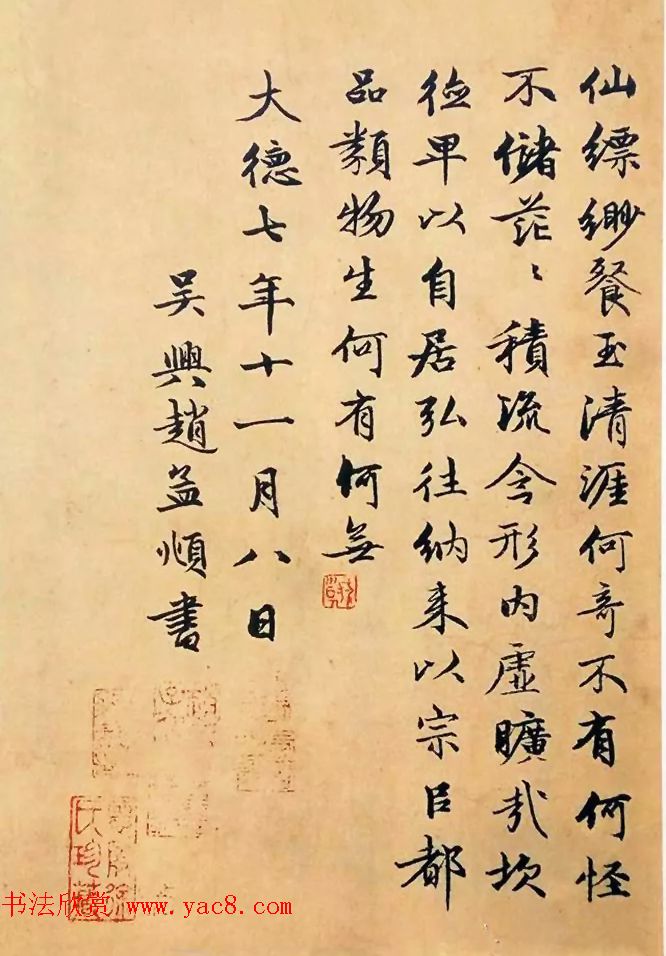 仙縹緲餐玉清涯何奇不有何怪
不儲茫〻積流含形內虛曠哉坎
德卑以自居弘往納来以宗以都
品類物生何有何無
大德七年十一月八日
吳興趙孟頫書
书法欣赏 www.yac8.com